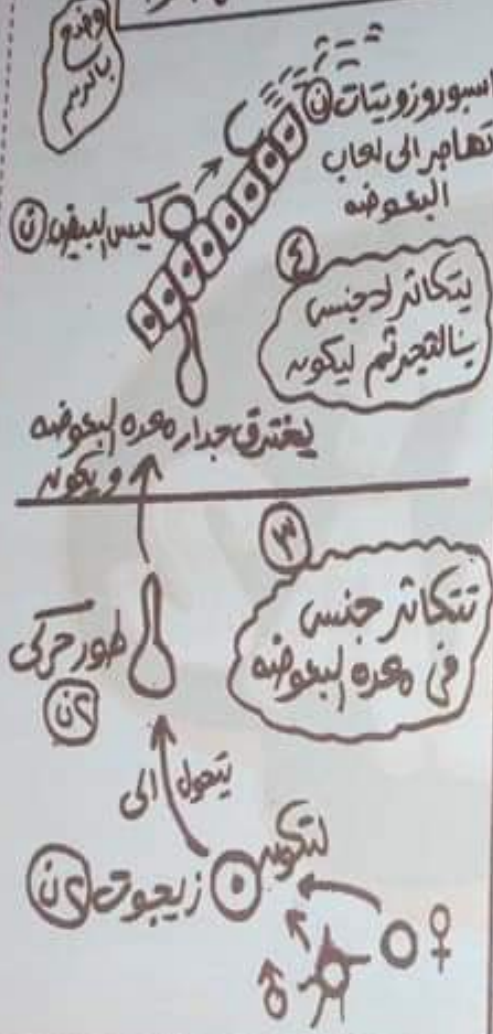 وضح
بالرسم
اسبوروزويتات ن
تهاجر الى لعاب
البعوضه
كيس البيض ن
٤
يتكاثر لاجنسى
بالتجرثم ليكون
يخترق جدار معده البعوضه
ويكون
٣
تتكاثر جنسى
فى معده البعوضه
طور حركى
٢ن
يتحول الى
لتكون
زيجوت ٢ن
♀
♂